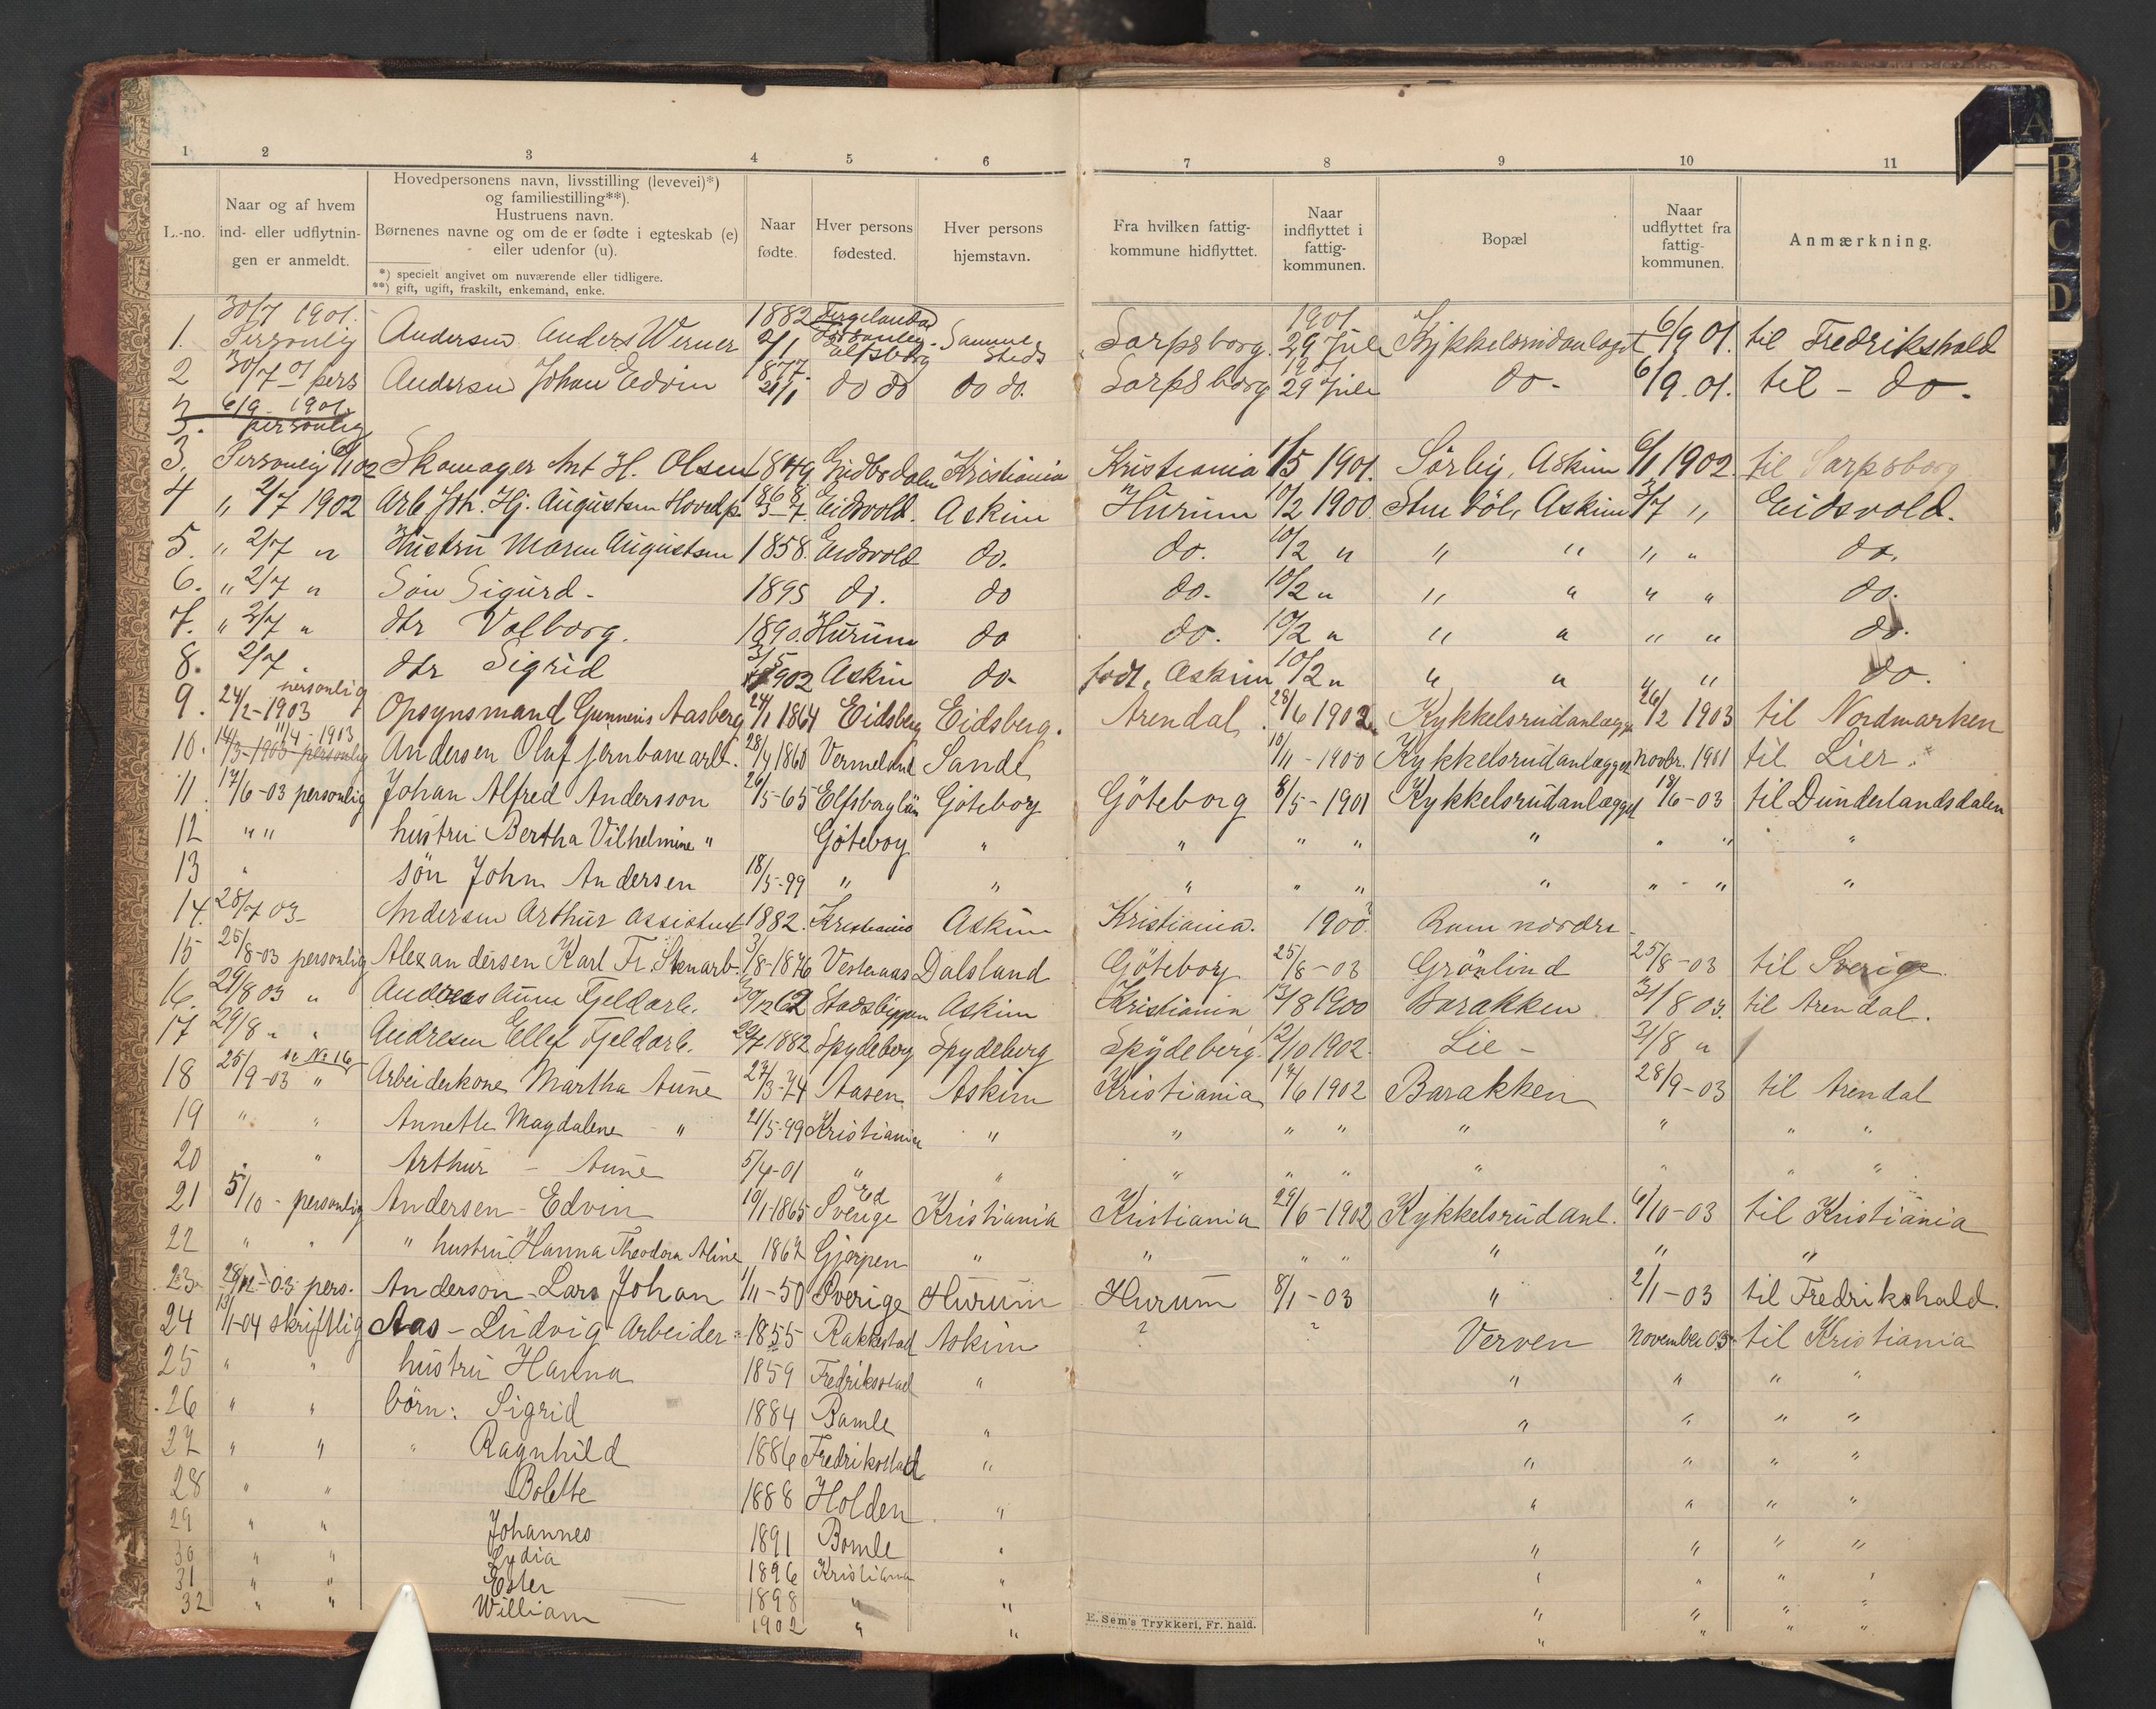 1 2 3 4 5 6 7 8 9 10 11
L.-no.
Naar og af hvem ind- eller udflytnin-gen er anmeldt.
Hovedpersonens navn, livsstilling (levevei)*)
og familiestilling**).
Hustruens navn.
Børnenes navne og om de er fødte i egteskab (e)
eller udenfor (u).
*) specielt angivet om nuværende eller tidligere.
**) gift, ugift, fraskilt, enkemand, enke.
Naar fødte.
Hver persons fødested.
Hver persons hjemstavn.
Fra hvilken fattig-kommune hidflyttet.
Naar indflyttet i fattig-kommunen.
Bopæl
Naar udflyttet fra fattig-kommunen.
Anmærkning.
1. 30/7 1901. Personlig Andersen Anders Werner 1882 2/1 Elfsborg Samme Steds Sarpsborg. 1901 29 Juli Kykkelsrudanlaget 6/9 01. til Fredrikshald
2 30/7 01 pers Andersen Johan Edvin 1877. 21/1 do do do do. Sarpsborg 1901 29 Juli do- 6/9.01. til - do.
3. 6/9 - 1901. personlig
3. Personlig 6/1 02 Skomager Ant H. Olsen 1849 Kristiania Kristiania 1/5 1901. Sörby, Askim 6/1 1902. til Sarpsborg
4 " 2/7 1902 Arb Joh. Hj. Augustsen Hovedp. 1868 Eidsvold. Askim Hurum 10/2 1900 Askim 3/7 " Eidsvold.
5. " 2/7 " Hustru Maren Augustsen 1858. Eidsvold do. do. 10/2 " " " " " do.
6. " 2/7 " Sön Sigurd - 1895 do. do do. 10/2 " " " " " do.
7. " 2/7 " dtr Valborg. 1890. Hurum do do. 10/2 " " " " " do.
8. 2/7 " dtr Sigrid 3/5 1902 Askim do födt. Askim 10/2 " " " " " do.
9. 24/2-1903 personlig Opsynsmand Gunneris Aasberg 24/1 1864 Eidsberg Eidsberg. Arendal. 28/6 1902. Kykkelsrudanlægget 26/2 1903 til Nordmarken
10. 14/3-1903 personlig 11/4-1903 Andersen Oluf jernbanearb. 28/4 1860 Vermeland Sande 10/11-1900 Kykkelsrudanlægget Novbr. 1901 til Lier.
11. 17/6-03 personlig Johan Alfred Andersson 26/5-65 Elfsborglän Göteborg Göteborg 8/5-1901 Kykkelsrudanlægget 18/6-03 til Dunderlandsdalen
12 " " hustru Bertha Vilhelmine " Göteborg " " " " " " " "
13 " sön John Andersen 18/5-99 " " " " " " " " "
14. 28/7 03 Andersen Arthur assistent 1882. Kristiania Askim Kristiania. 1900? Ram nordre
15 25/8-03 personlig Alexandersen Karl Fr. Stenarb. 3/8-1876 Vesteraas Dalsland Göteborg 25/8-03 Grönlind 25/8-03 til Sverige
16. 29/8 03 " Andreas Aune Fjeldarb. 30/12 62 Stadsbygden Askim Kristiania 13/8 1900 Barakken 31/8 03. til Arendal.
17 29/8 " " Andresen Ellef Fjeldarb. 22/7 1882 Spydeberg Spydeberg Spydeberg. 12/10 1902. Lie - 31/8 "
18 25/9-03 " se No 16 Arbeiderkone Martha Aune 27/3-74 Aasen Askim Kristiania 17/6 1902 Barakken 28/9-03 til Arendal
19 " " Annette Magdalene " 21/5-99 Kristiania " " " " " " " "
20 " " Arthur - Aune 5/4-01 " " " " " " " " "
21 5/10 - personlig Andersen - Edvin 10/1-1865 Ed Sverige Kristiania Kristiania 29/6-1902 Kykkelsrudanl. 6/10-03 til Kristiania
22 " " " hustru Hanna Theodora Aline 1867 Gjerpen " " " " " " "
23 28/12-03 pers. Anderson - Lars Johan 1/11-50 Sverige Hurum Hurum 8/1-03 " 2/1-03 til Fredrikshald.
24 13/1-04 skriftlig Aas - Ludvig - Arbeider 1855 Rakkestad Askim ? ? Verven November 03 til Kristiania
25 " " hustru Hanna 1859 Fredriksstad " " " " "
26 " " börn: Sigrid 1884 Bamle " " " " "
27 " " " Ragnhild 1886 Fredriksstad " " " " "
28 " " Bolette 1888 Holden " " " " "
29 " " Johannes 1891 Bamle " " " " "
30 " " Lydia 1896 Kristiania " " " " "
31 " " Ester 1898 " " " " " "
32 " " William 1902 " " " " " "
E. Sem's Trykkeri, Fr. hald.
A
B
C
D